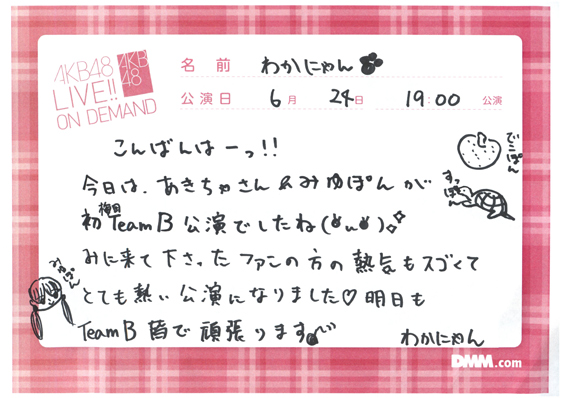 AKB48
LIVE!!
ON DEMAND
AKB
48
名前 わかにゃん
公演日 6月 24日 19:00 公演
こんばんはーっ!!
今日は、あきちゃさん&みゆぽんが
初 Team B 公演でしたね(
みに来て下さったファンの方の熱気もスゴくて
とても熱い公演になりました♡明日も
Team B 皆で頑張ります
わかにゃん
でこぽん
すっぽん
みゆぽん
DMM.com